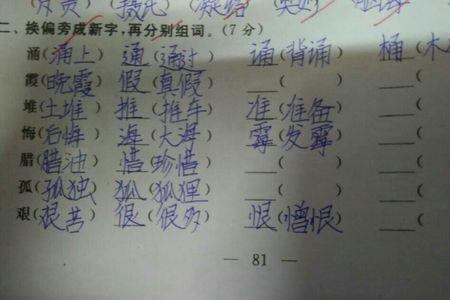 二、换偏旁成新字,再分别组词。(7 分)
涌(涌上) 通(通过) 诵(背诵) 桶(木
霞(晚霞) 假(真假) ___( ) ___(
堆(土堆) 推(推车) 准(准备) ___(
悔(后悔) 海(大海) 霉(发霉) ___(
腊(腊油) 惜(珍惜) ___( ) ___(
孤(孤独) 狐(狐狸) ___( ) ___(
艰(艰苦) 很(很多) 恨(憎恨) ___(
— 81 —